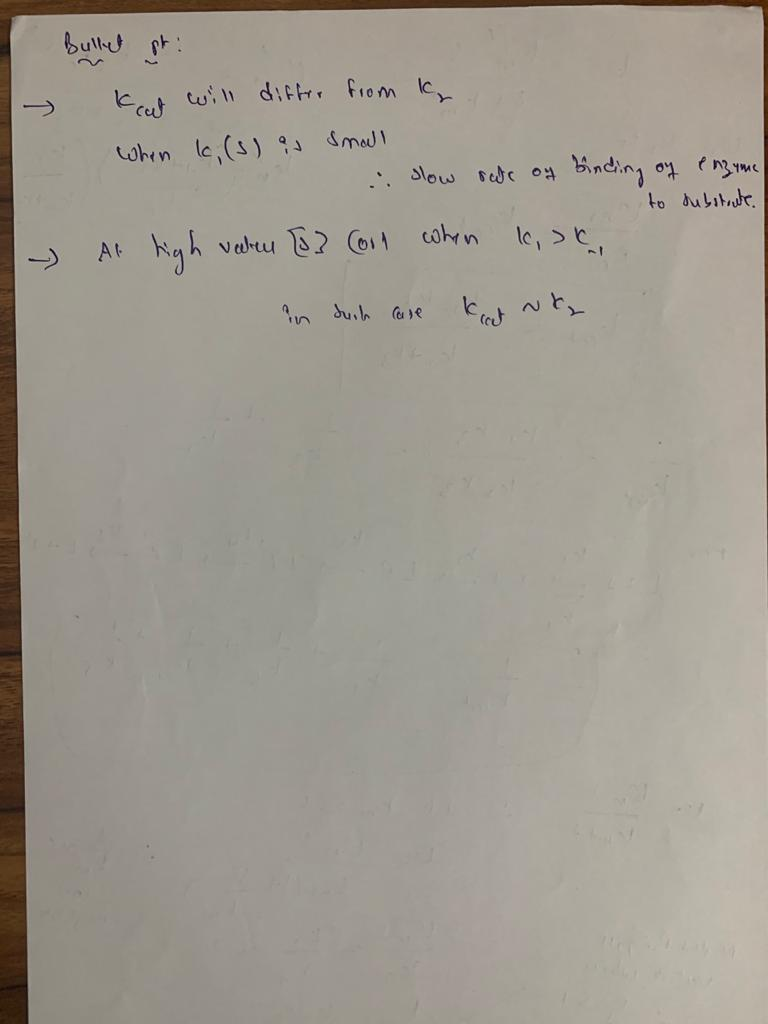 Bullet pt:
→ Kcat will differ from K2
when k1(s) is small
∴ slow rate of binding of enzyme
to substrate.
→ At high values [s] (or) when k1 > K-1
in such case Kcat ~ K2